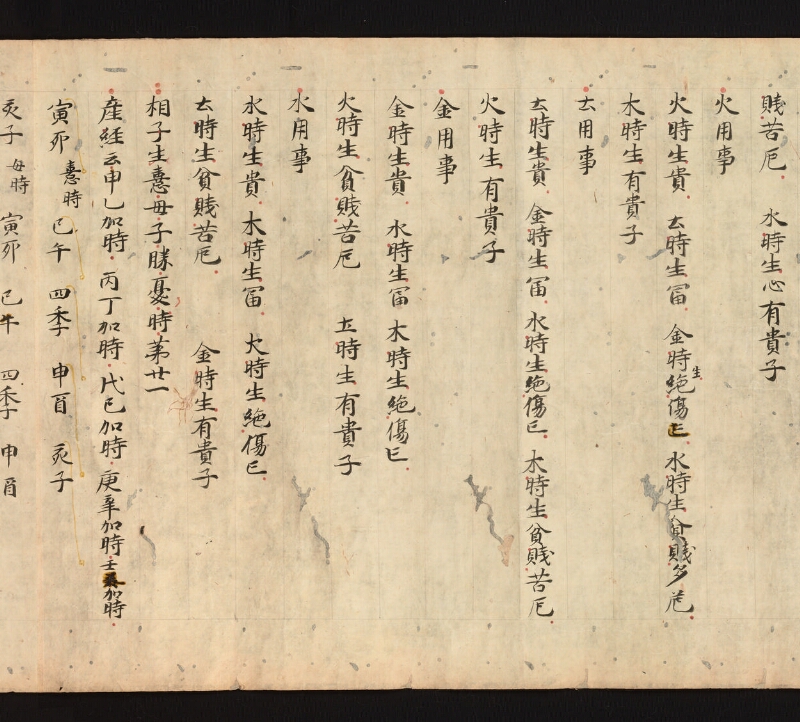 賎苦厄　水時生心有貴子
火用事
火時生貴　土時生冨　金時生絶傷亡　水時生貧賎多厄
木時生有貴子
土用事
土時生貴　金時生冨　水時生絶傷亡　木時生貧賎苦厄
火時生有貴子
金用事
金時生貴　水時生冨　木時生絶傷亡
火時生貧賎苦厄　土時生有貴子
水用事
水時生貴　木時生冨　火時生絶傷亡
土時生貧賎苦厄　金時生有貴子
相子生憙母子勝憂時第廿一
産経云甲乙加時　丙丁加時　戊己加時　庚辛加時　壬癸加時
寅卯憙時　巳午　四季　申酉　亥子
亥子母時　寅卯　巳午　四季　申酉